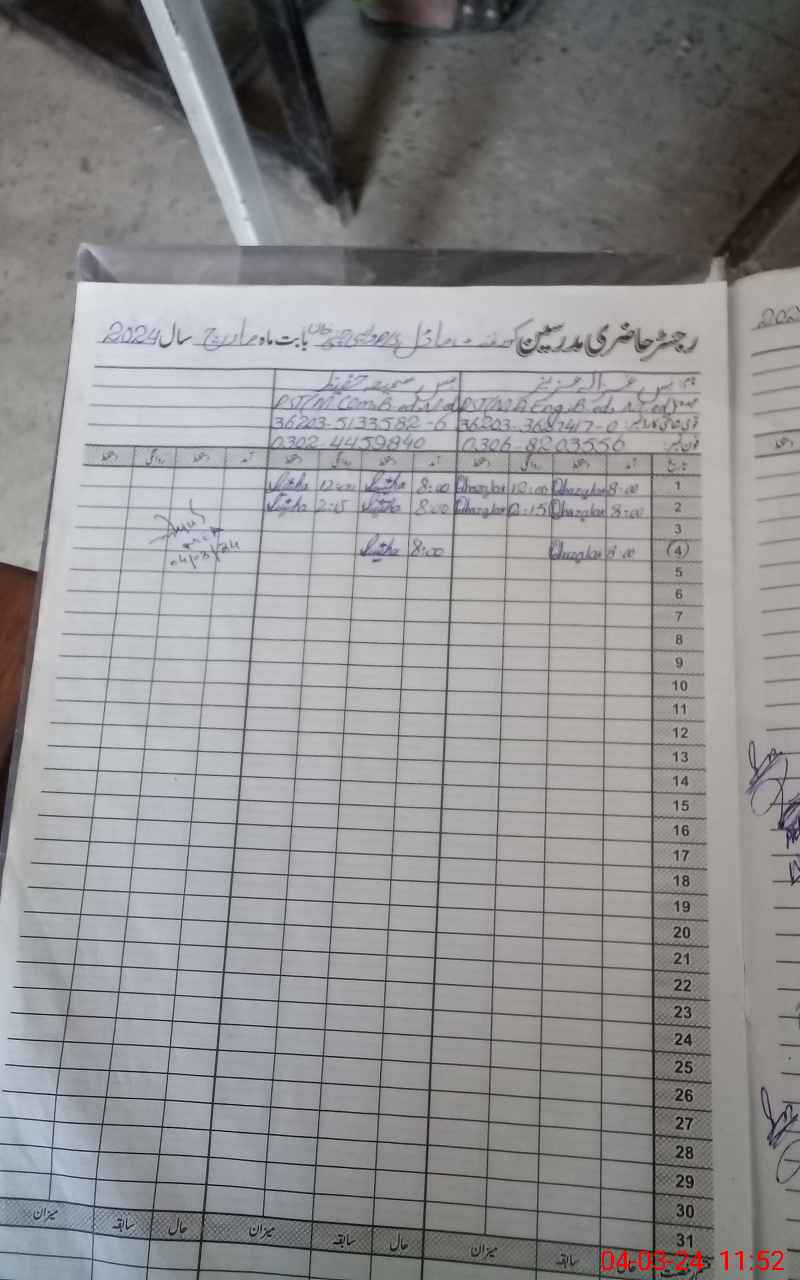 رجسٹر حاضری مدرسین گورنمنٹ ماڈل بابت ماہ مارچ سال 2024
نام مس غزالہ عزیز مس سمیعہ حفیظ
PST/M.A Eng. B.ed, M.ed PST/M.Com B.ed M.ed
36203-5133582-6
0306-8203556 0302-4459840
تاریخ آمد دستخط روانگی دستخط آمد دستخط روانگی دستخط آمد دستخط روانگی دستخط
1 8:00 Ghazala 12:00 Ghazala 8:00 12:00
2 8:00 Ghazala 2:15 Ghazala 8:00 2:15
3
4 8:00 Ghazala 8:00
04/03/24
5
6
7
8
9
10
11
12
13
14
15
16
17
18
19
20
21
22
23
24
25
26
27
28
29
30
31
حال سابقہ میزان حال سابقہ میزان حال سابقہ میزان
202
04-03-24 11:52